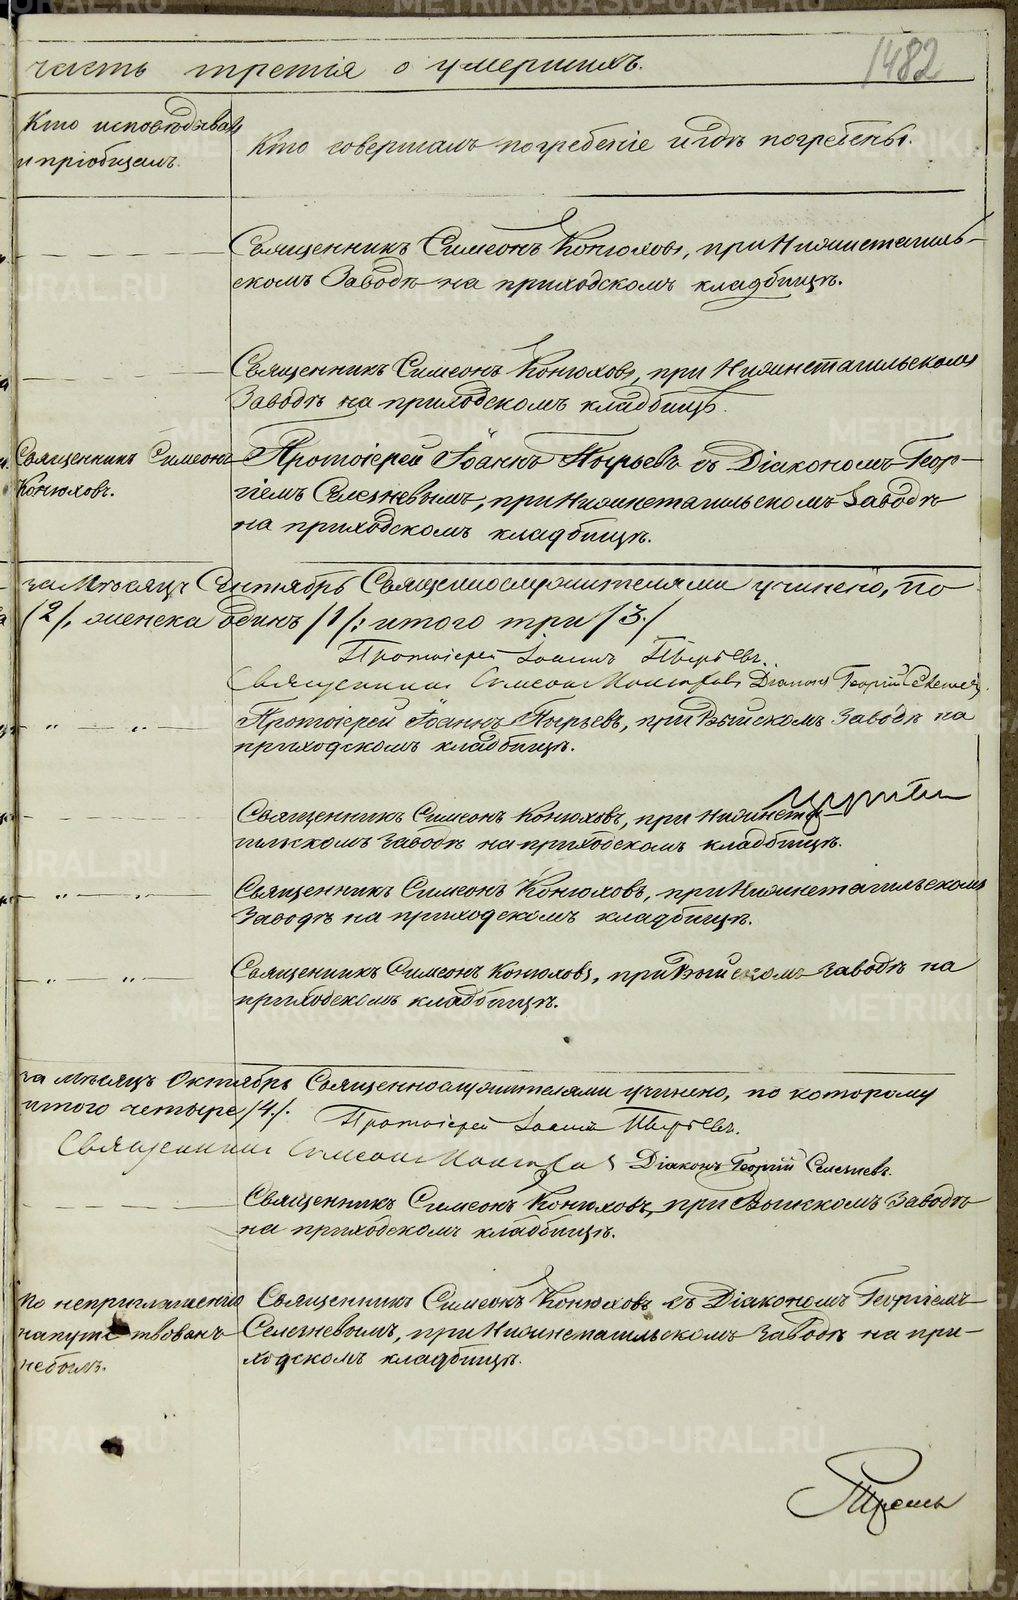 часть третія о умершихъ.
1482
Кто исповѣдывалъ
и пріобщалъ.
Кто совершалъ погребеніе и гдѣ погребены.
Священникъ Симеонъ Конюховъ, при Нижнетагиль-
скомъ Заводѣ на приходскомъ кладбищѣ.
Священникъ Симеонъ Конюховъ, при Нижнетагильскомъ
Заводѣ на приходскомъ кладбищѣ.
Священникъ Симеонъ
Конюховъ.
Протоіерей Іоаннъ Пырьевъ съ Діакономъ Геор-
гіемъ Селезневымъ, при Нижнетагильскомъ Заводѣ
на приходскомъ кладбищѣ.
за Мѣсяцъ Сентябрь Священнослужителями учинено, по
/2/, женска одинъ /1/: итого три /3/
Протоіерей Іоаннъ Пырьевъ.
Священникъ Симеонъ Конюховъ Діаконъ Георгій Селезневъ.
Протоіерей Іоаннъ Пырьевъ, при Выйскомъ Заводѣ на
приходскомъ кладбищѣ.
Священникъ Симеонъ Конюховъ, при Нижнета-
гильскомъ Заводѣ на приходскомъ кладбищѣ.
Священникъ Симеонъ Конюховъ, при Нижнетагильскомъ
Заводѣ на приходскомъ кладбищѣ.
Священникъ Симеонъ Конюховъ, при Выйскомъ Заводѣ на
приходскомъ кладбищѣ.
за мѣсяцъ Октябрь Священнослужителями учинено, по которому
итого четыре /4/.
Протоіерей Іоаннъ Пырьевъ.
Священникъ Симеонъ Конюховъ Діаконъ Георгій Селезневъ.
Священникъ Симеонъ Конюховъ, при Выйскомъ Заводѣ
на приходскомъ кладбищѣ.
По неприглашенію
напутствованъ
небылъ.
Священникъ Симеонъ Конюховъ съ Діакономъ Георгіемъ
Селезневымъ, при Нижнетагильскомъ Заводѣ на при-
ходскомъ кладбищѣ.
METRIKI.GASO-URAL.RU